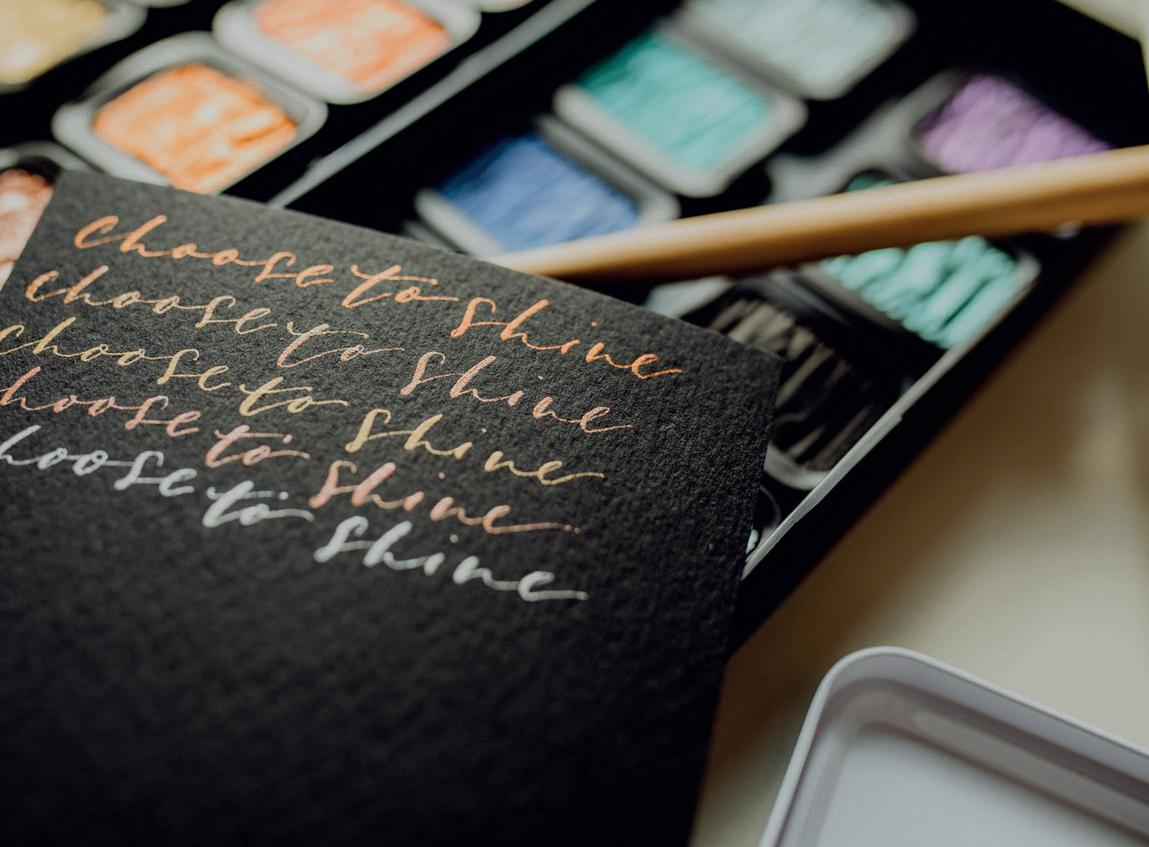 choose to shine
choose to shine
choose to shine
hoose to shine
hoose to shine